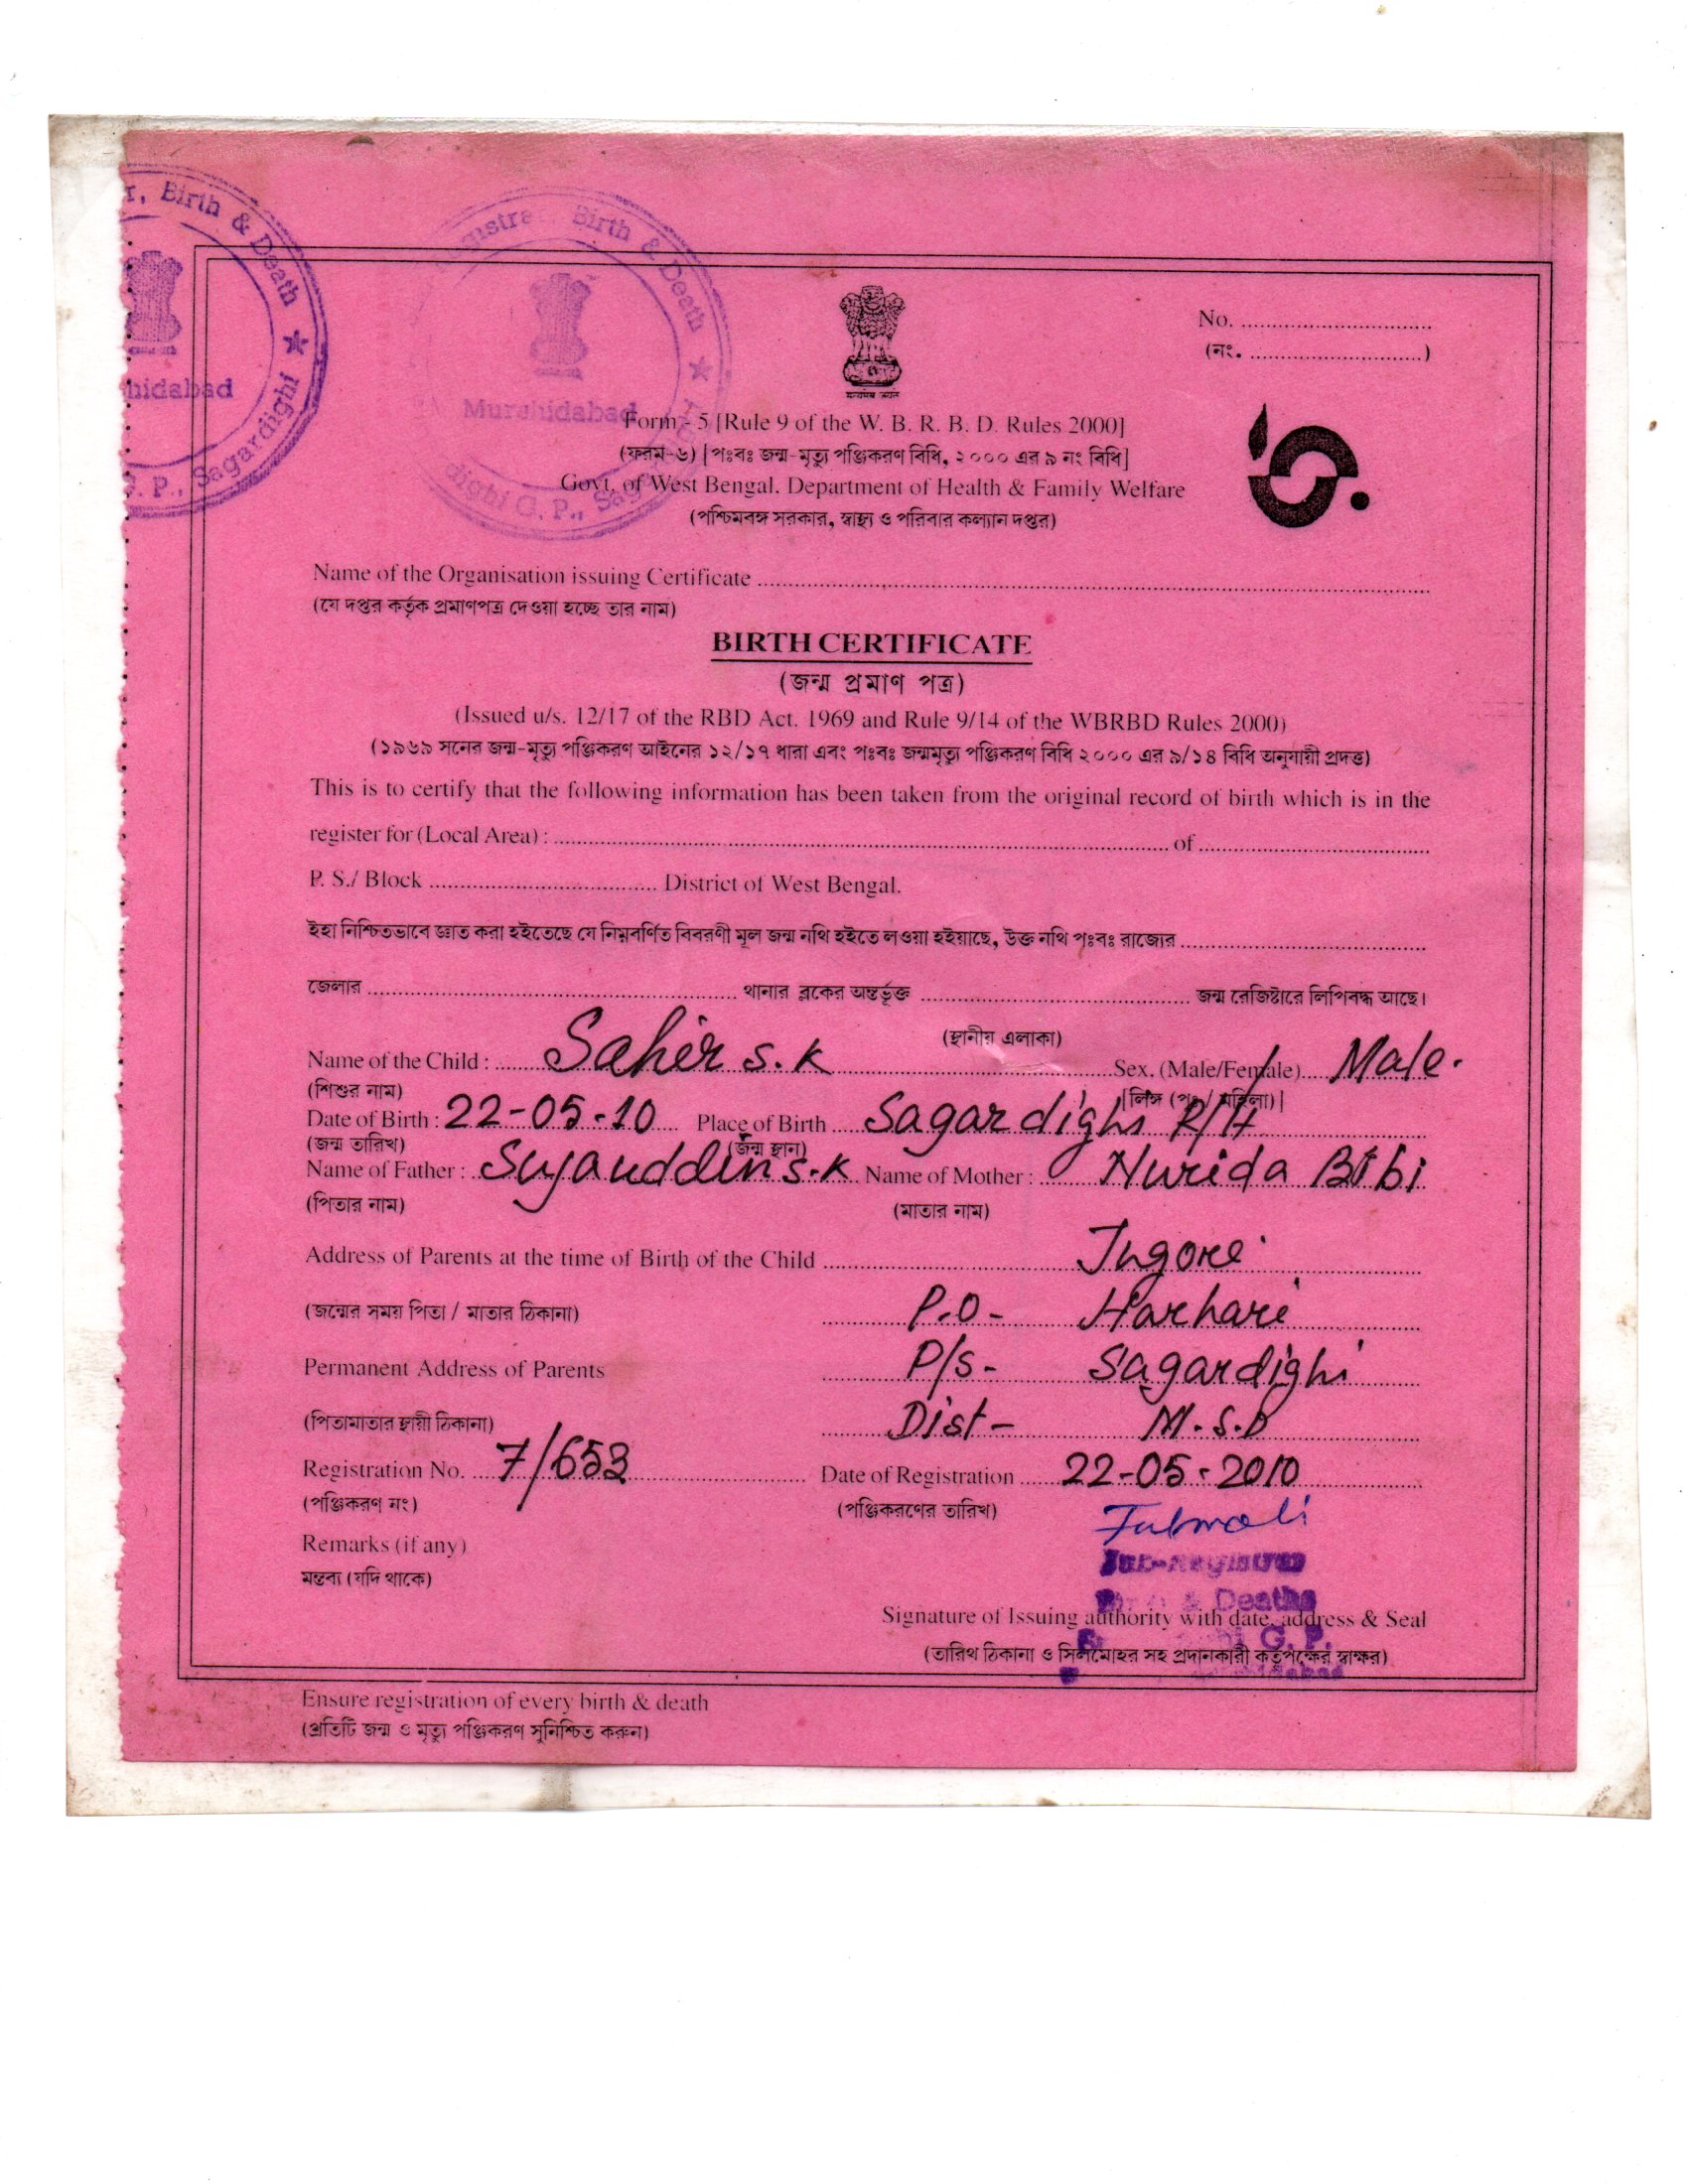 r, Birth & Death ★ Sagardighi G. P.,
hidabad
Birth & Death ★
Murshidabad
dighi G. P.,
No. ..............................
(নং. ............................)
Form - 5 [Rule 9 of the W. B. R. B. D. Rules 2000]
(ফরম-৬) [পঃবঃ জন্ম-মৃত্যু পঞ্জিকরণ বিধি, ২০০০ এর ৯ নং বিধি]
Govt. of West Bengal. Department of Health & Family Welfare
(পশ্চিমবঙ্গ সরকার, স্বাস্থ্য ও পরিবার কল্যান দপ্তর)
Name of the Organisation issuing Certificate ..............................
(যে দপ্তর কর্তৃক প্রমাণপত্র দেওয়া হচ্ছে তার নাম)
BIRTH CERTIFICATE
(জন্ম প্রমাণ পত্র)
(Issued u/s. 12/17 of the RBD Act. 1969 and Rule 9/14 of the WBRBD Rules 2000)
(১৯৬৯ সনের জন্ম-মৃত্যু পঞ্জিকরণ আইনের ১২/১৭ ধারা এবং পঃবঃ জন্মমৃত্যু পঞ্জিকরণ বিধি ২০০০ এর ৯/১৪ বিধি অনুযায়ী প্রদত্ত)
This is to certify that the following information has been taken from the original record of birth which is in the
register for (Local Area) : .............................. of ..............................
P. S./ Block .............................. District of West Bengal.
ইহা নিশ্চিতভাবে জ্ঞাত করা হইতেছে যে নিম্নবর্ণিত বিবরণী মূল জন্ম নথি হইতে লওয়া হইয়াছে, উক্ত নথি পঃবঃ রাজ্যের ..............................
জেলার .............................. থানার ব্লকের অন্তর্ভূক্ত .............................. জন্ম রেজিষ্টারে লিপিবদ্ধ আছে।
(স্থানীয় এলাকা)
Name of the Child : Sahir S. K Sex. (Male/Female) Male.
(শিশুর নাম) [লিঙ্গ (পুং / মহিলা)]
Date of Birth : 22-05-10 Place of Birth Sagardighi R/H
(জন্ম তারিখ) (জন্ম স্থান)
Name of Father : Sujauddin S.K Name of Mother : Nurida Bibi
(পিতার নাম) (মাতার নাম)
Address of Parents at the time of Birth of the Child Jugore
(জন্মের সময় পিতা / মাতার ঠিকানা) P.O- Harhari
Permanent Address of Parents P/S- Sagardighi
(পিতামাতার স্থায়ী ঠিকানা) Dist- M.S.D
Registration No. 7/653 Date of Registration 22-05-2010
(পঞ্জিকরণ নং) (পঞ্জিকরণের তারিখ)
Remarks (if any)
মন্তব্য (যদি থাকে)
Sub-Registrar
& Deaths
Signature of Issuing authority with date, address & Seal
G. P.
(তারিখ ঠিকানা ও সিলমোহর সহ প্রদানকারী কর্তৃপক্ষের স্বাক্ষর)
Ensure registration of every birth & death
(প্রতিটি জন্ম ও মৃত্যু পঞ্জিকরণ সুনিশ্চিত করুন)